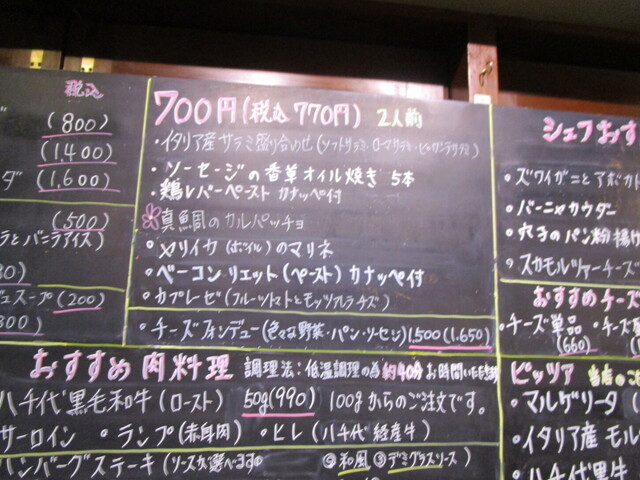 税込
(800)
(1,400)
ダ (1,600)
(500)
ラとバニラアイス)
スープ(200)
700円(税込 770円) 2人前
・イタリア産サラミ盛り合わせ
・ソーセージの香草オイル焼き 5本
・鶏レバーペースト カナッペ付
真鯛のカルパッチョ
・メリイカ(ボイル)のマリネ
・ベーコンリエット(ペースト)カナッペ付
・カプレーゼ(フルーツトマトとモッツァレラチーズ)
・チーズフォンデュー(色々な野菜・パン・ソーセージ)1500(1,650)
おすすめ肉料理 調理法:低温調理の為約40分お時間いただきます
八千代黒毛和牛(ロースト) 50g(990) 100gからのご注文です。
サーロイン ・ランプ(赤身肉) ・ヒレ(八千代経産牛)
ハンバーグステーキ(ソースが選べます ②和風 ③デミグラスソース)
シェフおす
・ズワイガニとアボカド
・バーニャカウダー
・穴子のパン粉揚げ
・スカモルツァーチーズ
おすすめチーズ
・チーズ単品 ・チーズ
(660)
ピッツァ 当店のこ
・マルゲリータ
・イタリア産モル
・八千代黒牛